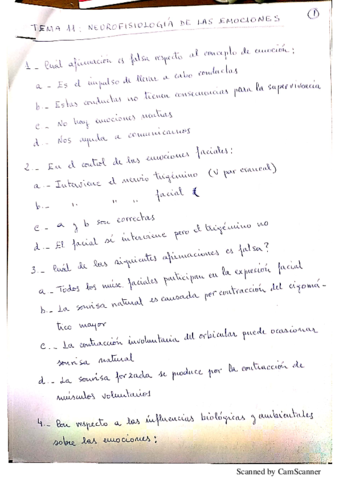 TEMA 11: NEUROFISIOLOGÍA DE LAS EMOCIONES
1
1.- Cuál afirmación es falsa respecto al concepto de emoción:
a - Es el impulso de llevar a cabo conductas
b - Estas conductas no tienen consecuencias para la supervivencia
c - No hay emociones
d - Nos ayuda a comunicarnos
2.- En el control de las emociones faciales:
a - Interviene el nervio trigémino (V par craneal)
b - " " " facial
c - a y b son correctas
d - El facial sí interviene pero el trigémino no
3.- Cuál de las siguientes afirmaciones es falsa?
a - Todos los musc. faciales participan en la expresión facial
b - La sonrisa natural es causada por contracción del cigomá-
tico mayor
c.- La contracción involuntaria del orbicular puede ocasionar
sonrisa natural
d - La sonrisa forzada se produce por la contracción de
músculos voluntarios
4.- Con respecto a las influencias biológicas y ambientales
sobre las emociones:
Scanned by CamScanner